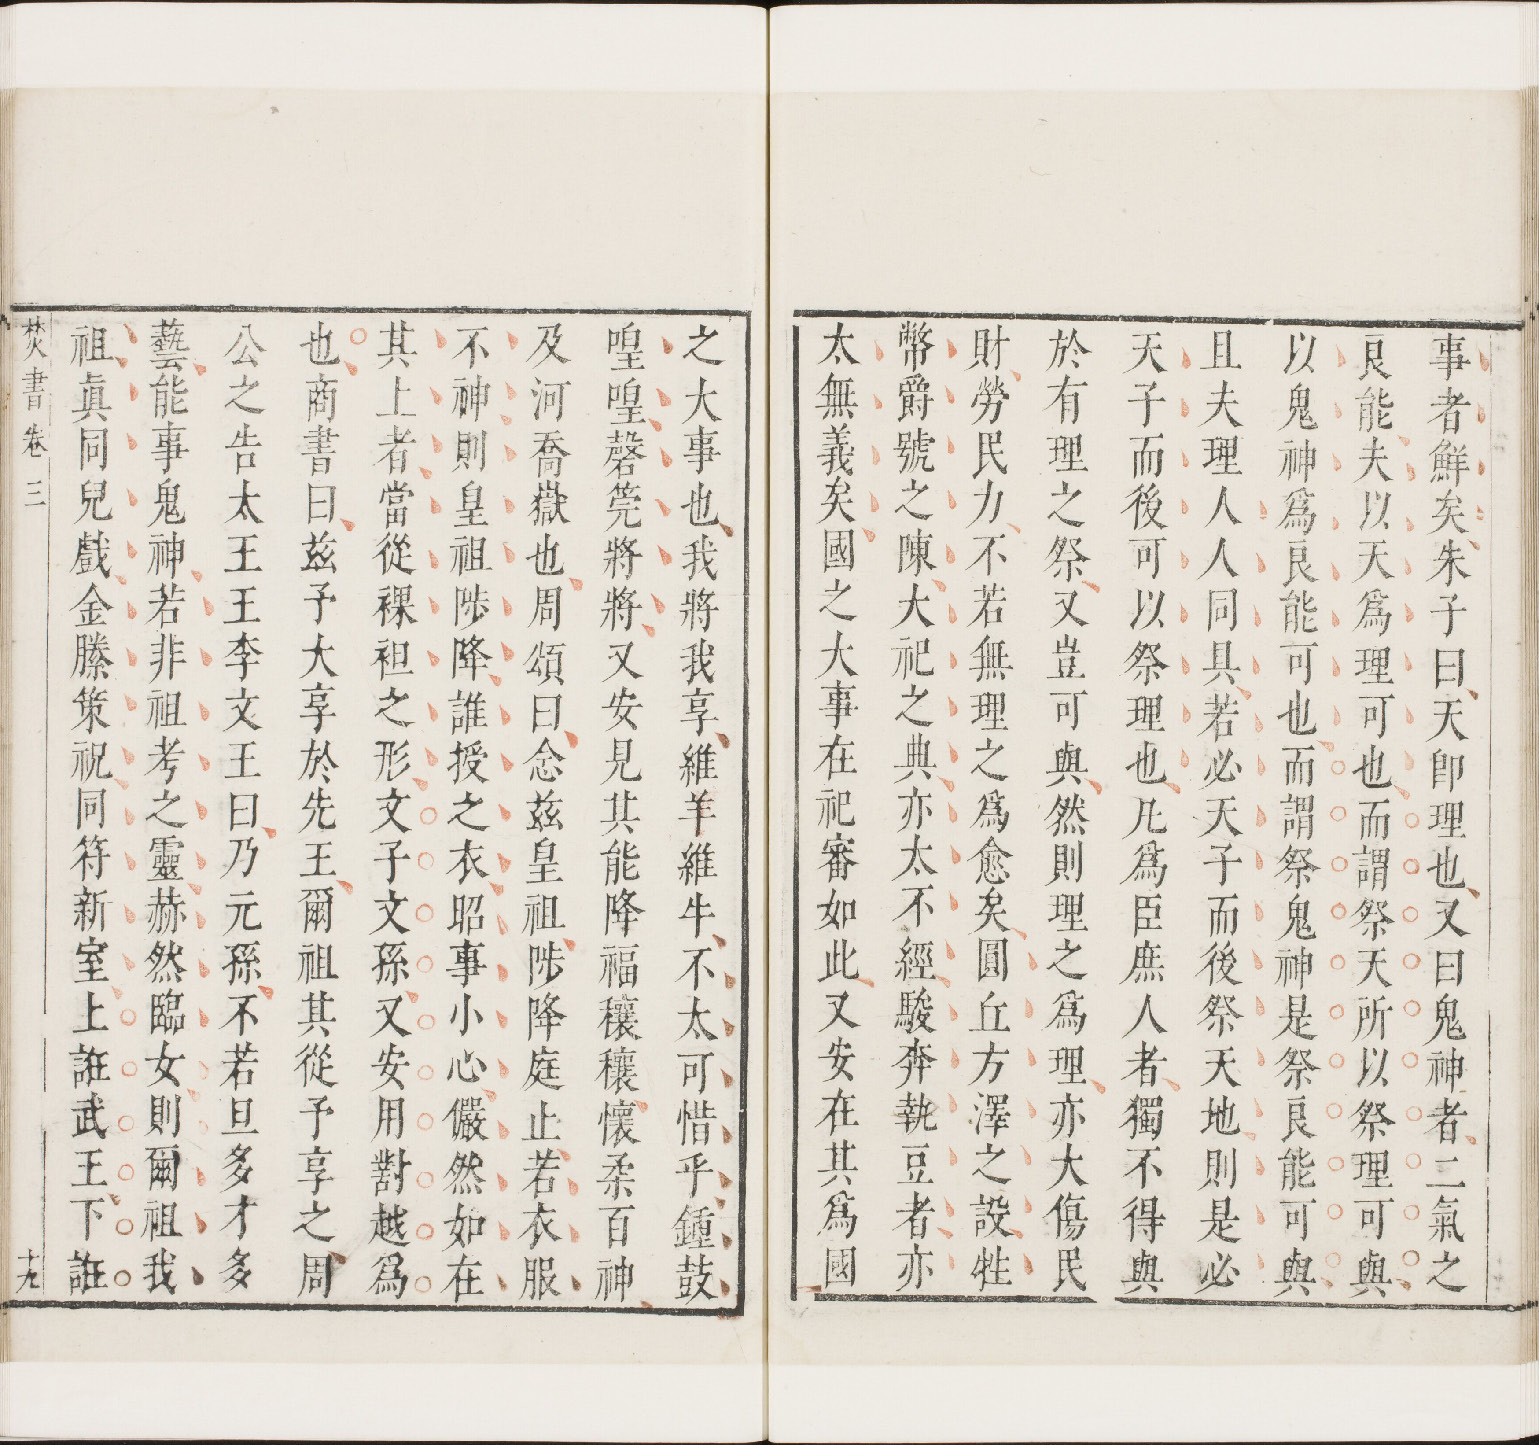 事者鮮矣朱子曰天卽理也又曰鬼神者二氣之
良能夫以天爲理可也而謂祭天所以祭理可與
以鬼神爲良能可也而謂祭鬼神是祭良能可與
且夫理人人同具若必天子而後祭天地則是必
天子而後可以祭理也凡爲臣庶人者獨不得與
於有理之祭又豈可與然則理之爲理亦大傷民
財勞民力不若無理之爲愈矣圓丘方澤之設牲
幣爵號之陳大祀之典亦太不經駿奔執豆者亦
太無義矣國之大事在祀審如此又安在其爲國
之大事也我將我享維羊維牛不太可惜乎鍾鼓
喤喤磬筦將將又安見其能降福穰穰懷柔百神
及河喬嶽也周頌曰念茲皇祖陟降庭止若衣服
不神則皇祖陟降誰授之衣昭事小心儼然如在
其上者當從裸袒之形文子文孫又安用對越爲
也商書曰茲予大享於先王爾祖其從予享之周
公之告太王王李文王曰乃元孫不若旦多才多
藝能事鬼神若非祖考之靈赫然臨女則爾祖我
祖眞同兒戲金縢策祝同符新室上誑武王下誑
焚書卷三
十九